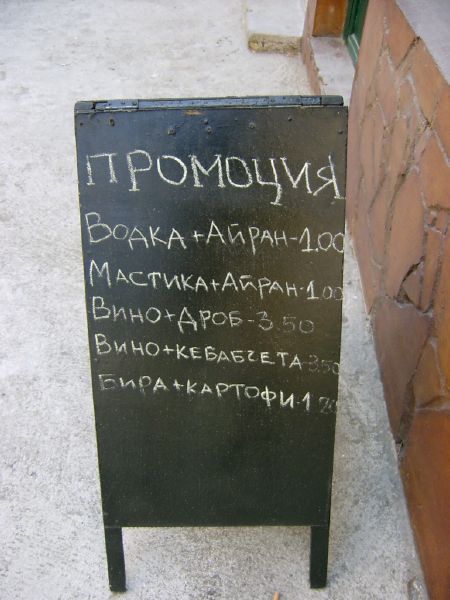 ПРОМОЦИЯ
ВОДКА+АЙРАН-1.00
МАСТИКА+АЙРАН-1.00
ВИНО+ДРОБ-3.50
ВИНО+КЕБАБЧЕТА-3.50
БИРА+КАРТОФИ-1.20